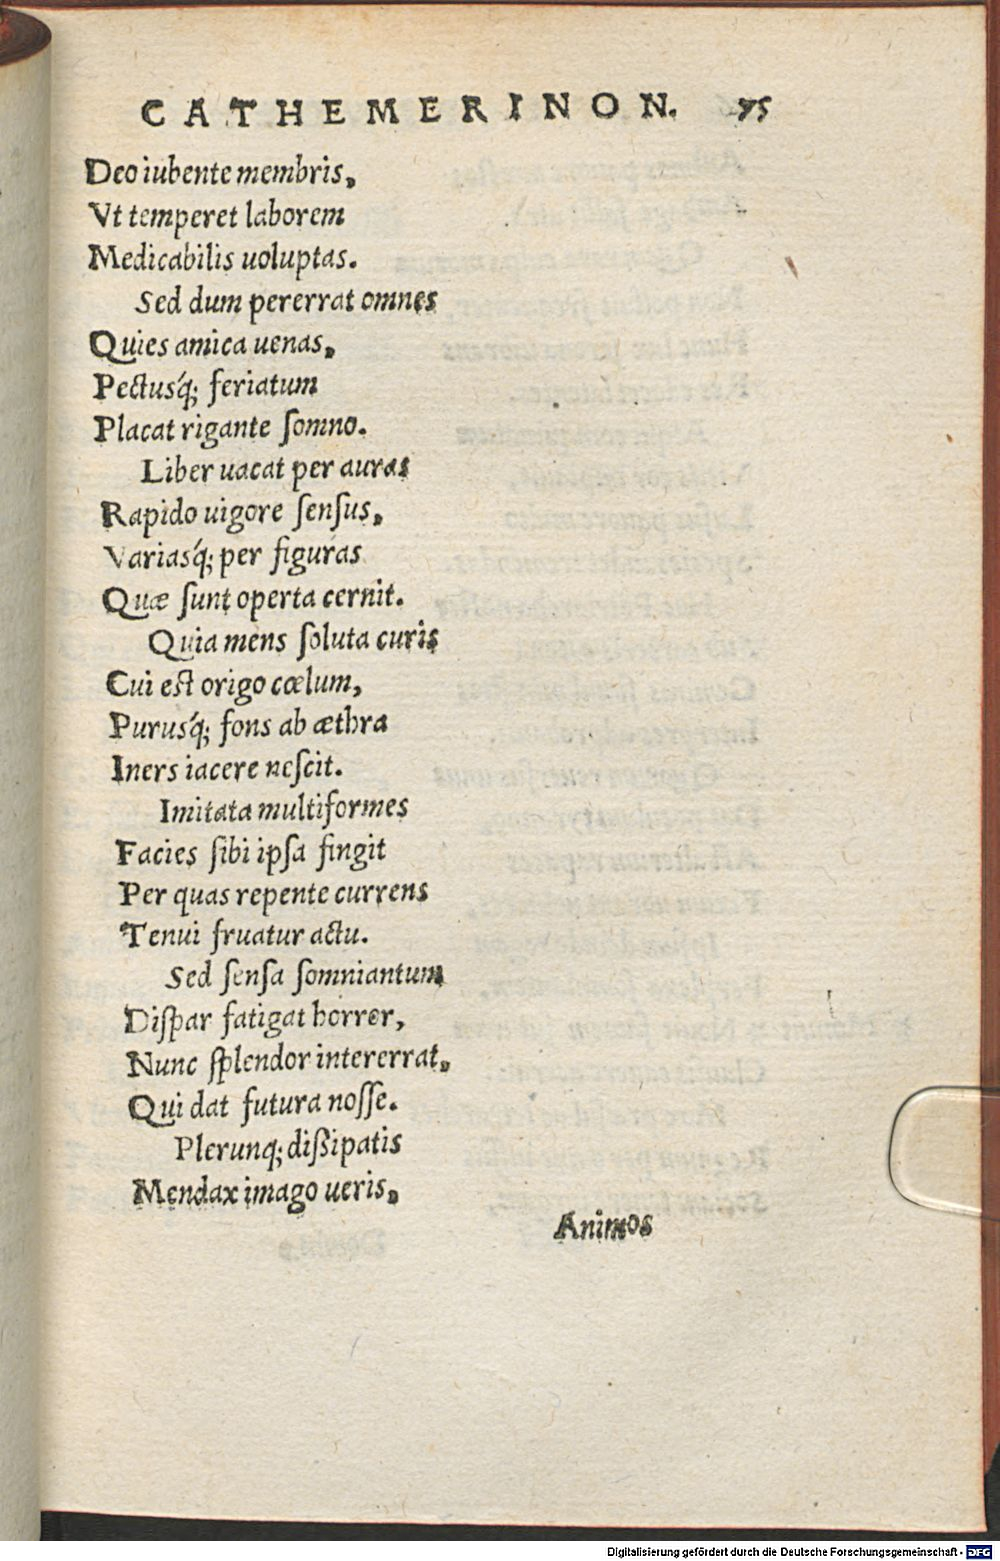 CATHEMERINON. 75
Deo iubente membris,
Vt temperet laborem
Medicabilis uoluptas.
Sed dum pererrat omnes
Quies amica uenas,
Pectusq́; feriatum
Placat rigante ſomno.
Liber uacat per auras
Rapido uigore ſenſus,
Variasq́; per figuras
Quæ ſunt operta cernit.
Quia mens ſoluta curis
Cui est origo cœlum,
Purusq́; fons ab æthra
Iners iacere neſcit.
Imitata multiformes
Facies ſibi ipſa fingit
Per quas repente currens
Tenui fruatur actu.
Sed ſenſa ſomniantum
Diſpar fatigat horror,
Nunc ſplendor intererrat,
Qui dat futura noſſe.
Plerunq; dißipatis
Mendax imago ueris,
Animos
Digitalisierung gefördert durch die Deutsche Forschungsgemeinschaft - DFG